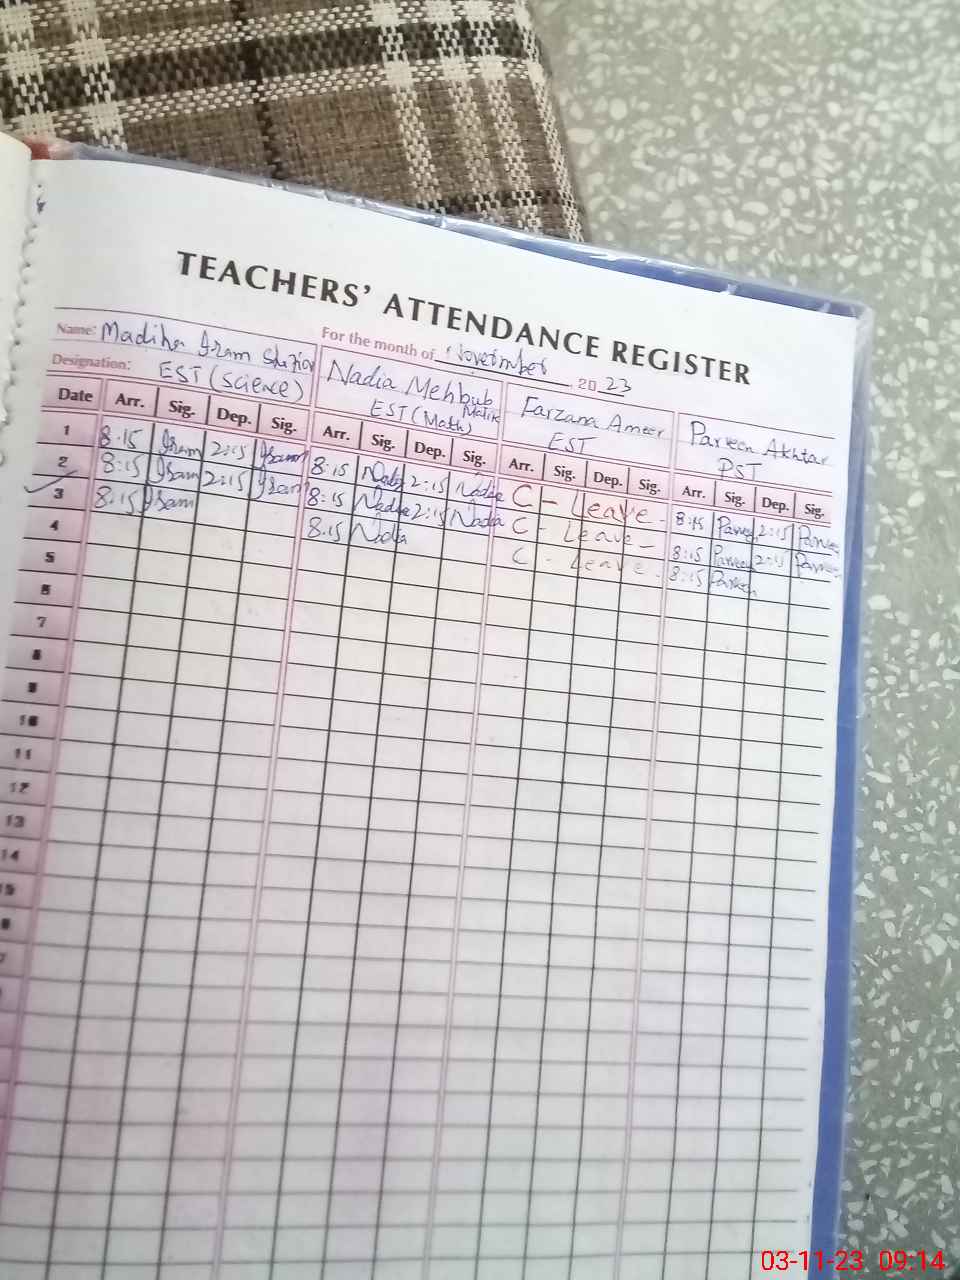 TEACHERS' ATTENDANCE REGISTER
Name: Madiha Iram For the month of November 2023
Designation: EST (Science) Nadia Mehbub Malik EST (Math) Farzana Ameer EST Parveen Akhtar PST
Date Arr. Sig. Dep. Sig. Arr. Sig. Dep. Sig. Arr. Sig. Dep. Sig. Arr. Sig. Dep. Sig.
1 8:15 Iram 2:15 Iram 8:15 Nadia 2:15 Nadia C - Leave - 8:15 Parveen 2:15 Parveen
2 8:15 Iram 2:15 Iram 8:15 Nadia 2:15 Nadia C - Leave - 8:15 Parveen 2:15 Parveen
3 8:15 Iram 8:15 Nadia C - Leave - 8:15 Parveen
4
5
6
7
8
9
10
11
12
13
14
15
03-11-23 09:14